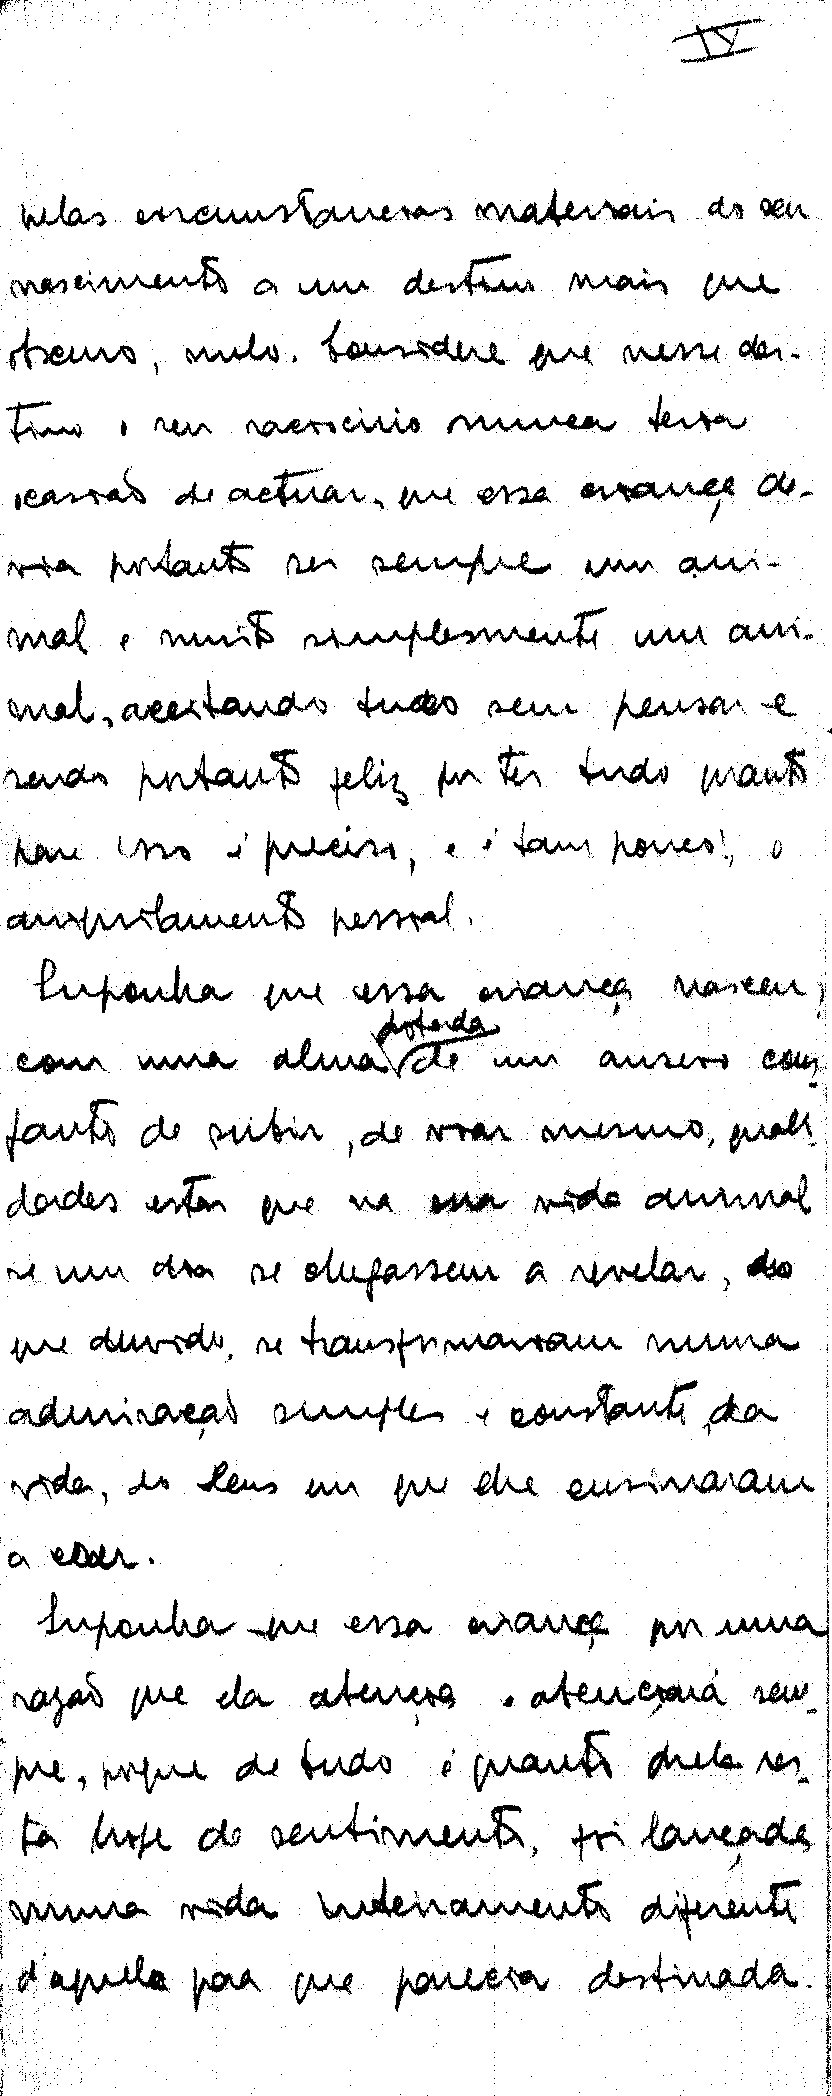 IV
pelas circumstancias materiais do seu
nascimento a um destino mais que
obscuro, nulo. Considere que nesse des-
tino o seu raciocinio nunca teria
ocasião de actuar, que essa criança de-
via portanto ser sempre um ani-
mal e muito simplesmente um ani-
mal, aceitando tudo sem pensar e
sendo portanto feliz por ter tudo quanto
para isso é preciso, e é tam pouco!, o
aniquilamento pessoal.
Suponha que essa criança nasceu,
dotada
com uma alma de um anseio cons-
tante de subir, de voar mesmo, quali-
dades estas que na sua vida animal
se um dia se chegassem a revelar, do
que duvido, se transformariam numa
admiração simples e constante da
vida, do Deus em que lhe ensinaram
a crer.
Suponha que essa criança por uma
razão que ela abençoa e abençoará sem-
pre, porque de tudo é quanto dela res-
ta hoje de sentimento, foi lançada
numa vida inteiramente diferente
d'aquela para que parecia destinada.